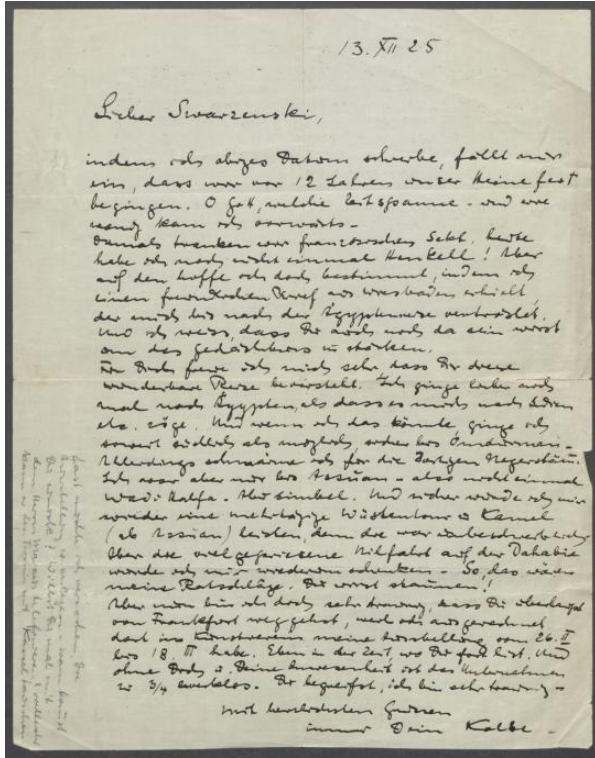 13. XII 25
Lieber Swarzenski,
indem ich obiges Datum schreibe, fällt mir
ein, dass wir vor 12 Jahren unser Heinefest
begingen. O Gott, welche Zeitspanne - und wie
wenig kam ich vorwärts -
Damals tranken wir französischen Sekt. heute
habe ich noch nicht einmal Henkell! Aber
auf den hoffe ich doch bestimmt, indem ich
einen freundlichen Brief aus Wiesbaden erhielt,
der mich bis nach der Ägyptenreise vertröstet.
Und ich weiss, dass Du auch noch da sein wirst
um das Gedächtnis zu stärken.
Für Dich freue ich mich sehr, dass Dir diese
wunderbare Reise bevorsteht. Ich ginge lieber noch
mal nach Ägypten, als dass es mich nach Indien
etc. zöge. Und wenn ich das könnte, ginge ich
soweit südlich als möglich, sicher bis Omdurman -
Allerdings schwärme ich für die dortigen
Ich war aber nur bis Assuan - also nicht einmal
Wadi Halfa. Abu Simbel. Und sicher würde ich mir
wieder eine mehrtägige Wüstentour zu Kamel
(ab Assuan) leisten, denn die war
Aber die vielgepriesene Nilfahrt auf der Dahabie
würde ich mir wiederum schenken - So, das wären
meine Ratschläge. Du wirst staunen!
Aber nun bin ich doch sehr traurig, dass Du überhaupt
von Frankfurt weggehst, weil ich ausgerechnet
dort im Kunstverein meine Ausstellung vom 26. II
bis 18. III habe. Eben in der Zeit, wo Du fort bist. Und
ohne Dich u. Deine Anwesenheit ist das Unternehmen
zu 3/4 zwecklos. Du begreifst, ich bin sehr traurig -
Mit herzlichsten Grüssen
immer Dein Kolbe -
Fast möchte ich versuchen, die
Ausstellung zu verlegen - kaum